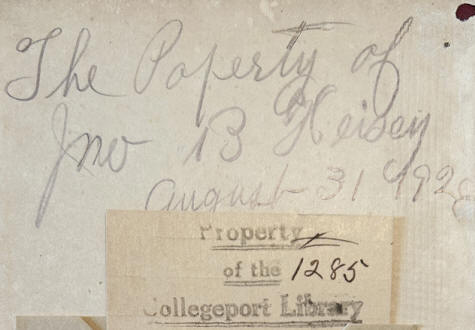 The Poperty of
Jno B Heisey
August 31 192
Property
of the 1285
Collegeport Library